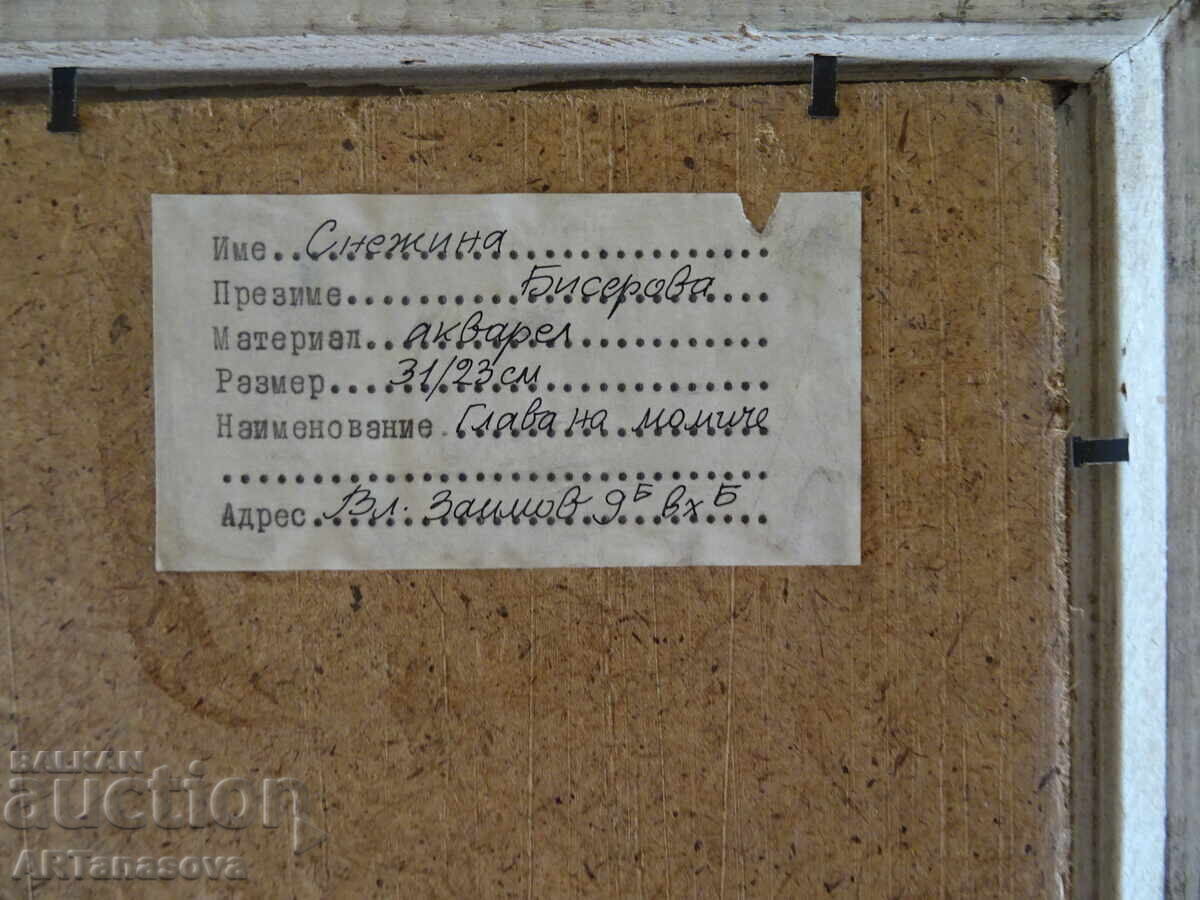 Име..Снежина
Презиме.......Бисерова
Материал..акварел
Размер...31/23 см
Наименование.Глава на момиче
Адрес.Вл. Заимов 9Б вх Б
BALKAN
auction
ARTanasova